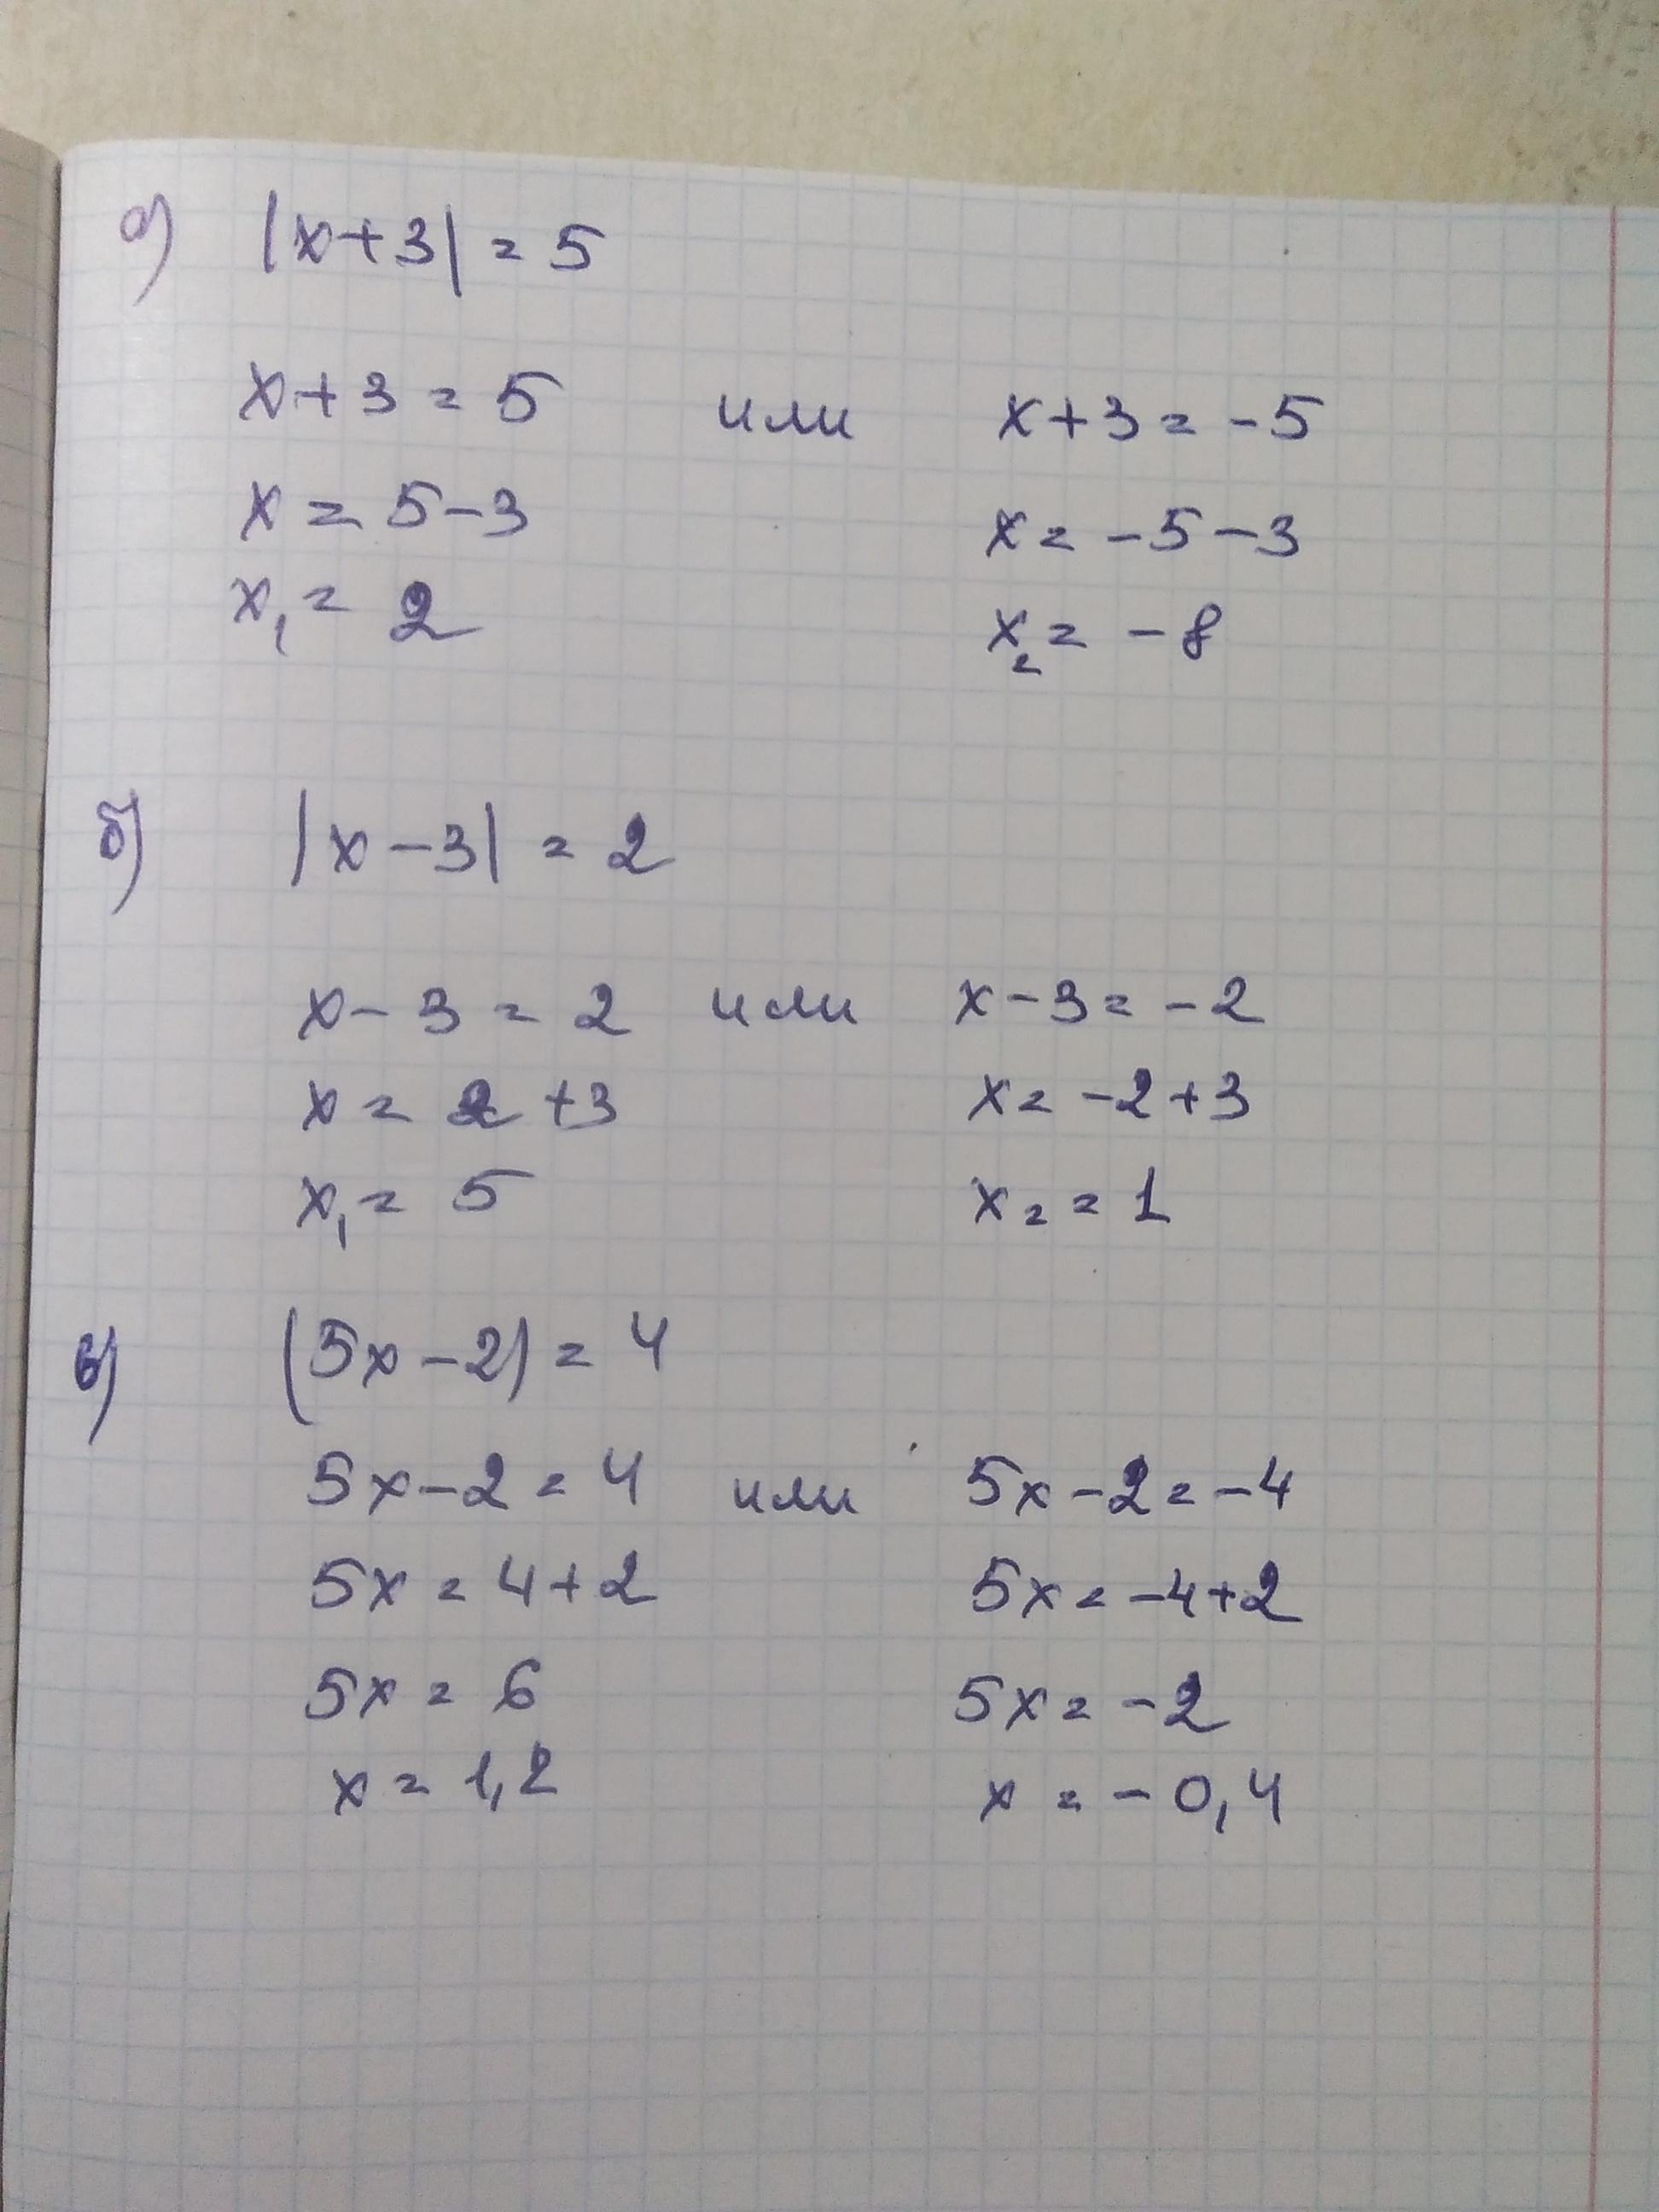 а) |x+3| = 5
x+3 = 5 или x+3 = -5
x = 5-3 x = -5-3
x₁ = 2 x₂ = -8
б) |x-3| = 2
x-3 = 2 или x-3 = -2
x = 2+3 x = -2+3
x₁ = 5 x₂ = 1
в) (5x-2) = 4
5x-2 = 4 или 5x-2 = -4
5x = 4+2 5x = -4+2
5x = 6 5x = -2
x = 1,2 x = -0,4